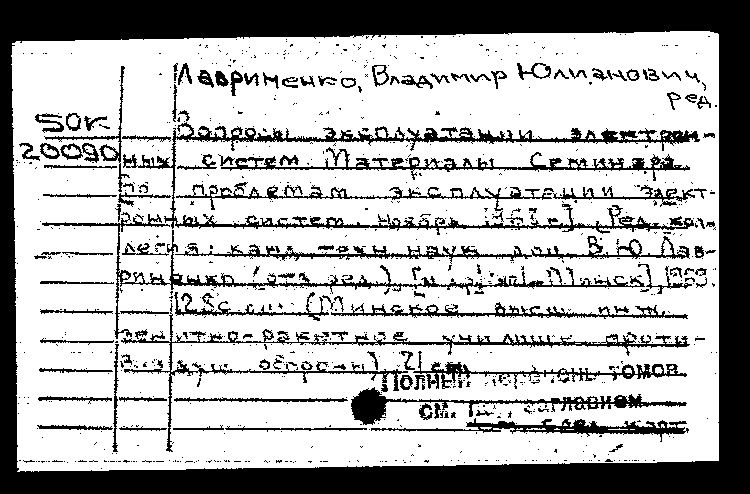 Лавриненко, Владимир Юлианович,
ред.
50к
20090
Вопросы эксплуатации электрон-
ных систем. Материалы Семинара
по проблемам эксплуатации элект-
ронных систем. ноябрь 1968 г.] [Ред. кол-
легия: канд. техн. наук доц. В. Ю. Лав-
риненко (отв. ред.) [и др.] Минск], 1969.
128 с. (Минское высш. инж.
зенитно-ракетное училище проти-
воздуш обороны) 21 см
Полный перечень томов
см. под заглавием